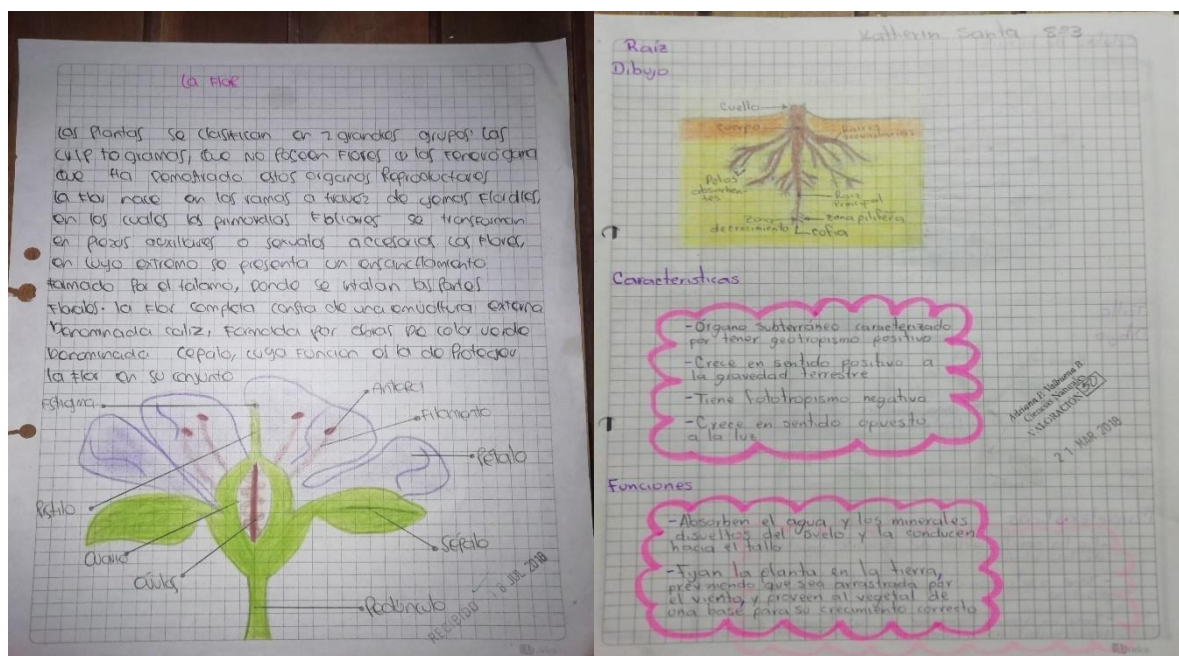 La Flor
Las Plantas se clasifican en 2 grandes grupos: Las
criptogramas, que No Poseen Flores y las Fenerógama
que Ha Demostrado estos organos Reproductores
la Flor nace en las ramas a travez de yemas Floridles,
en los cuales los primordios Foliares se transforman
en piezas auxiliares o sexuales accesorias Las Flores,
en cuyo extremo se presenta un ensanchamiento
tamado por el tálamo, Donde se intalan las partes
Florales. la Flor completa consta de una envoltura externa
Denominada caliz, Formada por obras De color verde
Denominada Cepalo, cuya Función es la de Proteger
la flor en su conjunto
Estigma
Antera
Filamento
Pétalo
Estilo
Sépalo
Ovario
Óvulos
Pedúnculo
RECIBIDO 18 JUL 2018
Katherin Santa 8°3
Raíz
Dibujo
Cuello
Cuerpo
Raices secundarias
Pelos
absorben
tes
Raiz
principal
zona
de crecimiento
zona pilifera
cofia
Caracteristicas
-Órgano subterráneo caracterizado
por tener geotropismo positivo
-Crece en sentido positivo a
la gravedad terrestre
-Tiene fototropismo negativo
-Crece en sentido opuesto
a la luz
Ciencias Naturales
VALORACION 50
21 MAR 2018
Funciones
-Absorben el agua y los minerales
disueltos del suelo y la conducen
hacia el tallo
-Fijan la planta en la tierra,
previniendo que sea arrastrada por
el viento, y proveen al vegetal de
una base para su crecimiento correcto